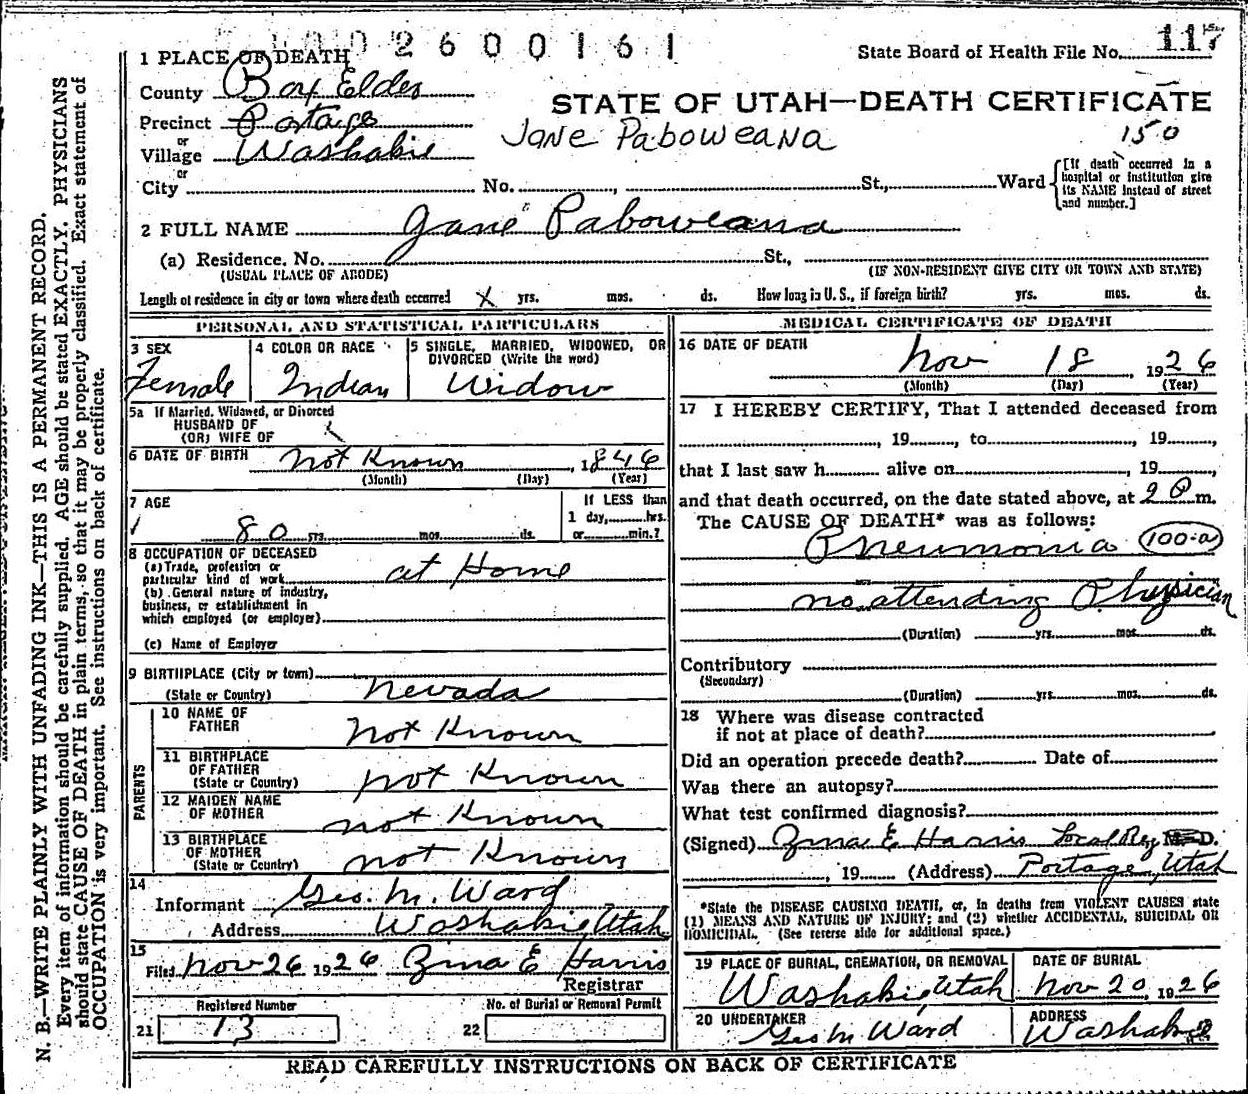 2600161
State Board of Health File No. 117
1 PLACE OF DEATH
County Box Elder
STATE OF UTAH—DEATH CERTIFICATE
Precinct Portage
or
Jane Paboweana
150
Village Washakie
or
City No. St., Ward
[If death occurred in a hospital or institution give its NAME instead of street and number.]
2 FULL NAME Jane Paboweana
(a) Residence. No. St.,
(USUAL PLACE OF ABODE) (IF NON-RESIDENT GIVE CITY OR TOWN AND STATE)
Length of residence in city or town where death occurred X yrs. mos. ds. How long in U. S., if foreign birth? yrs. mos. ds.
PERSONAL AND STATISTICAL PARTICULARS
3 SEX Female
4 COLOR OR RACE Indian
5 SINGLE, MARRIED, WIDOWED, OR
DIVORCED (Write the word)
Widow
5a If Married, Widowed, or Divorced
HUSBAND OF
(OR) WIFE OF
6 DATE OF BIRTH Not Known, 1846
(Month) (Day) (Year)
7 AGE
80 yrs. mos. ds.
If LESS than
1 day, hrs.
or min.?
8 OCCUPATION OF DECEASED
(a) Trade, profession or
particular kind of work at Home
(b) General nature of industry,
business, or establishment in
which employed (or employer)
(c) Name of Employer
9 BIRTHPLACE (City or town)
(State or Country) Nevada
PARENTS
10 NAME OF
FATHER Not Known
11 BIRTHPLACE
OF FATHER
(State or Country) not Known
12 MAIDEN NAME
OF MOTHER not Known
13 BIRTHPLACE
OF MOTHER
(State or Country) not Known
14
Informant Geo. M. Ward
Address Washakie, Utah
15
Filed Nov 26 1926 Zina E Harris
Registrar
Registered Number
21 13
No. of Burial or Removal Permit
22
MEDICAL CERTIFICATE OF DEATH
16 DATE OF DEATH
Nov 18, 1926
(Month) (Day) (Year)
17 I HEREBY CERTIFY, That I attended deceased from
, 19 , to , 19 ,
that I last saw h alive on , 19 ,
and that death occurred, on the date stated above, at 2 P m.
The CAUSE OF DEATH* was as follows:
Pneumonia 100-a
no attending Physician
(Duration) yrs. mos. ds.
Contributory
(Secondary)
(Duration) yrs. mos. ds.
18 Where was disease contracted
if not at place of death?
Did an operation precede death? Date of
Was there an autopsy?
What test confirmed diagnosis?
(Signed) Zina E Harris Local Reg D.
, 19 (Address) Portage, Utah
*State the DISEASE CAUSING DEATH, or, in deaths from VIOLENT CAUSES state
(1) MEANS AND NATURE OF INJURY; and (2) whether ACCIDENTAL, SUICIDAL OR
HOMICIDAL. (See reverse side for additional space.)
19 PLACE OF BURIAL, CREMATION, OR REMOVAL
Washakie, Utah
DATE OF BURIAL
Nov 20, 1926
20 UNDERTAKER
Geo M. Ward
ADDRESS
Washakie
READ CAREFULLY INSTRUCTIONS ON BACK OF CERTIFICATE
N. B.—WRITE PLAINLY WITH UNFADING INK—THIS IS A PERMANENT RECORD.
Every item of information should be carefully supplied. AGE should be stated EXACTLY. PHYSICIANS
should state CAUSE OF DEATH in plain terms, so that it may be properly classified. Exact statement of
OCCUPATION is very important. See instructions on back of certificate.